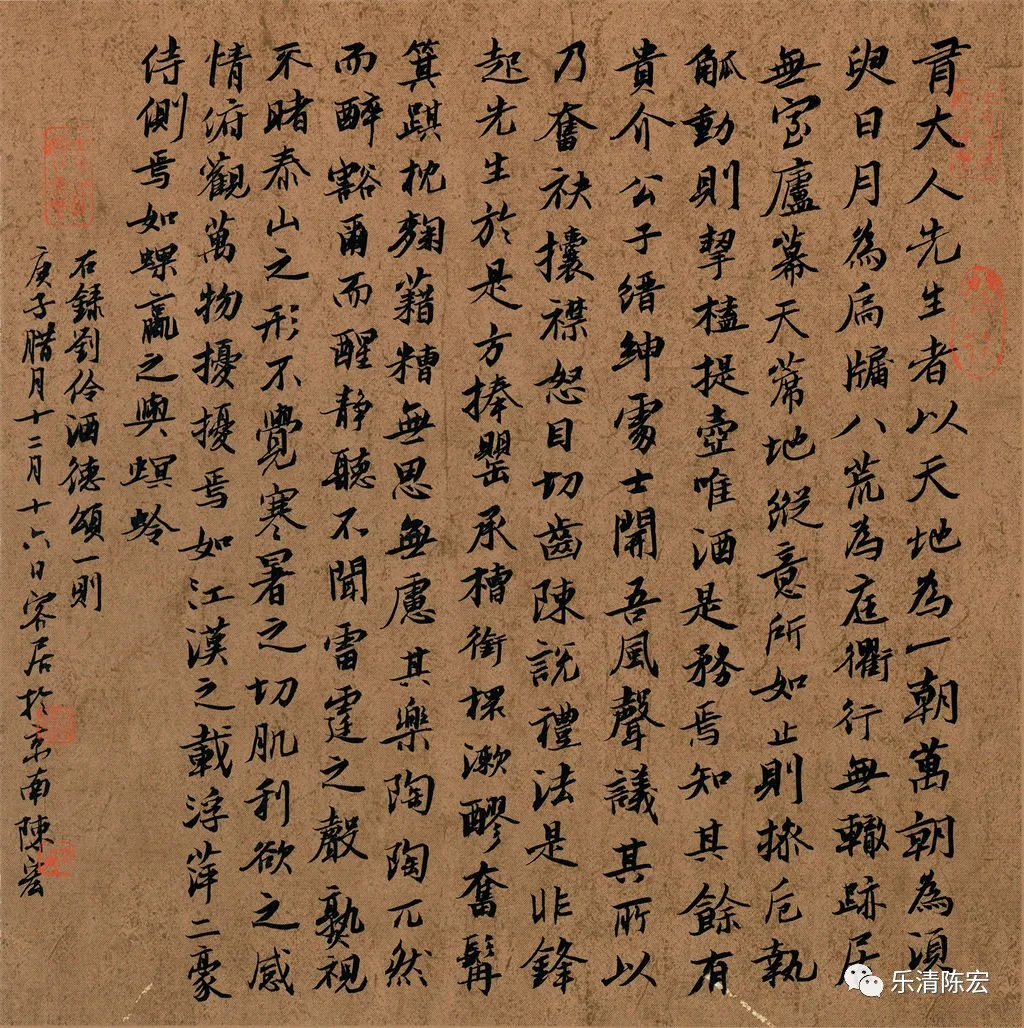 有大人先生者以天地為一朝萬朝為須
臾日月為扃牖八荒為庭衢行無轍跡居
無室廬幕天席地縱意所如止則操卮執
觚動則挈榼提壺唯酒是務焉知其餘有
貴介公子縉紳處士聞吾風聲議其所以
乃奮袂攘襟怒目切齒陳說禮法是非鋒
起先生於是方捧罌承槽銜杯漱醪奮髯
箕踞枕麴藉糟無思無慮其樂陶陶兀然
而醉豁爾而醒靜聽不聞雷霆之聲孰視
不睹泰山之形不覺寒暑之切肌利欲之感
情俯觀萬物擾擾焉如江漢之載浮萍二豪
侍側焉如蜾蠃之與螟蛉
右錄劉伶酒德頌一則
庚子腊月十二月十六日客居於京南陳宏
乐清陈宏